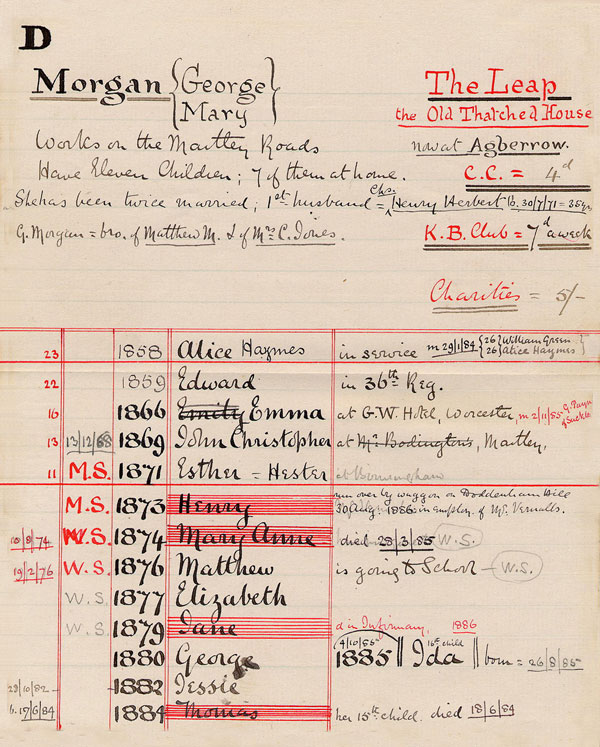 D
Morgan {George The Leap
{Mary} the Old Thatched House
Works on the Martley Roads now at Agberrow.
Have Eleven Children; 7 of them at home. C.C. = 4d
She has been twice married; 1st husband = Chs. Henry Herbert b. 30/7/71 = 35 yrs
G. Morgan = bro. of Matthew M. & of Mrs C. Jones. K.B. Club = 7d a week
Charities = 5/-
23 1858 Alice Haymes in service m 29/1/84 {26 William Green
{26 Alice Haymes}
22 1859 Edward in 36th Reg.
16 1866 Emily Emma at G.W. Hotel, Worcester, m 2/11/85 G. Payn
13 13/12/68 1869 John Christopher at Mr Bodington's, Martley,
11 M.S. 1871 Esther = Hester at Birmingham
M.S. 1873 Henry run over by waggon on Doddenham Hill
30/Aug. 1886 in employ. of Mr. Vernalls.
10/8/74 W.S. 1874 Mary Anne died 28/3/85 W.S.
19/2/76 W.S. 1876 Matthew is going to School - W.S.
W.S. 1877 Elizabeth
W.S. 1879 Jane d in Infirmary, 1886
1880 George 4/10/85 1885 || Ida 16th child || born = 26/8/85
29/10/82 - 1882 Jessie
b. 17/6/84 1884 Thomas her 15th child. died 18/6/84